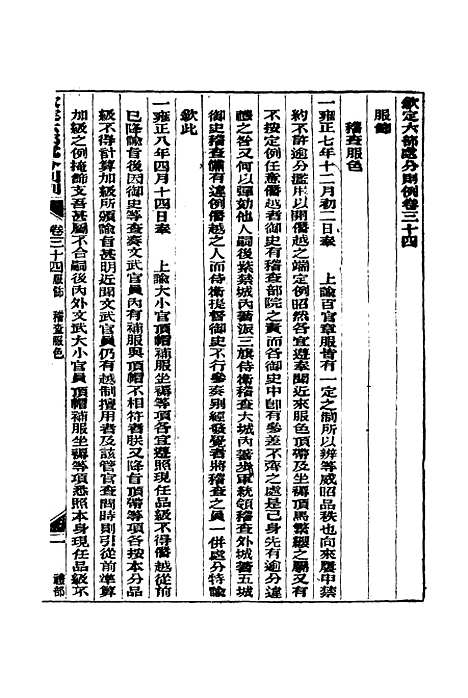 欽定六部處分則例卷三十四
服飾
稽查服色
一雍正七年十二月初二日奉　上諭百官章服皆有一定之制所以辨等威昭品秩也向來屢申禁
約不許逾分濫用以開僭越之端定例昭然各宜遵奉聞近來服色頂帶及坐褥頂馬繁纓之屬又有
不按定例任意僭越者御史有稽查部院之責而各御史中即有參差不齊之處是己身先有逾分違
禮之咎又何以彈劾他人嗣後紫禁城內著派三旗侍衛稽查大城內著步軍統領稽查外城著五城
御史稽查倘有違例僭越之人而侍衛提督御史不行參奏別經發覺者將稽查之員一併處分特諭
欽此
一雍正八年四月十四日奉　上諭大小官員頂帽補服坐褥等項各宜遵照現任品級不得僭越從前
已降諭旨後因御史等查奏文武官員內有補服與頂帽不相符者朕又降旨頂帶等項各按本分品
級不得計算加級所頒諭旨甚明近聞文武官員仍有越制擅用者及該管官查問時則引從前準算
加級之例掩飾支吾甚屬不合嗣後內外文武大小官員頂帽補服坐褥等項悉照本身現任品級不
卷三十四服飾　稽查服色
一
禮部